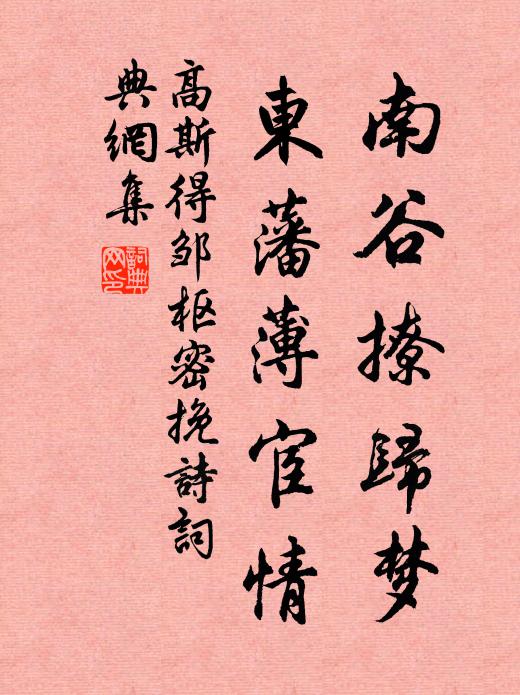 南谷撩歸梦
東藩薄宦情
高斯得邹枢密挽詩詞
典網集
詞典网印